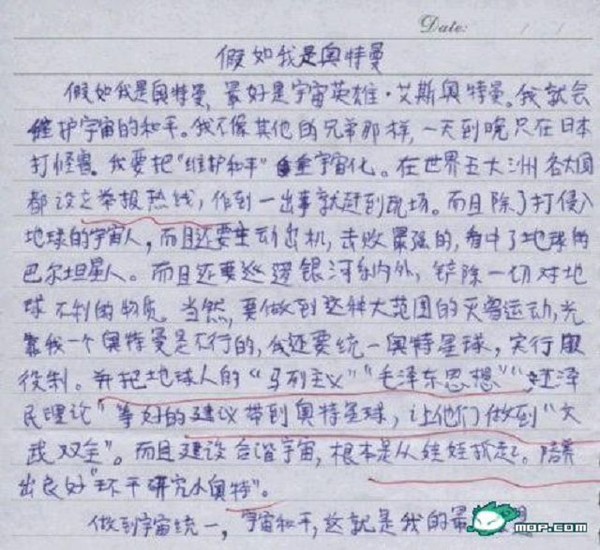 Date: / /
假如我是奥特曼
假如我是奥特曼,最好是宇宙英雄·艾斯奥特曼。我就会
维护宇宙的和平。我不像其他的兄弟那样,一天到晚只在日本
打怪兽。我要把“维护和平”全宇宙化。在世界五大洲各大国
都设立举报热线,作到一出事就赶到现场。而且除了打侵入
地球的宇宙人,而且还要主动出机,击败最强的,看中了地球的
巴尔坦星人。而且还要巡逻银河系内外,铲除一切对地
球不利的物质。当然,要做到这种大范围的灭兽运动,光
靠我一个奥特曼是不行的,我还要统一奥特星球,实行服
役制。并把地球人的“马列主义”“毛泽东思想”“江泽
民理论”等好的建议带到奥特星球,让他们做到“文
武双全”。而且建设合谐宇宙,根本是从娃娃抓起。培养
出良好“环干研究小奥特”。
做到宇宙统一,宇宙和平,这就是我的最
mop.com